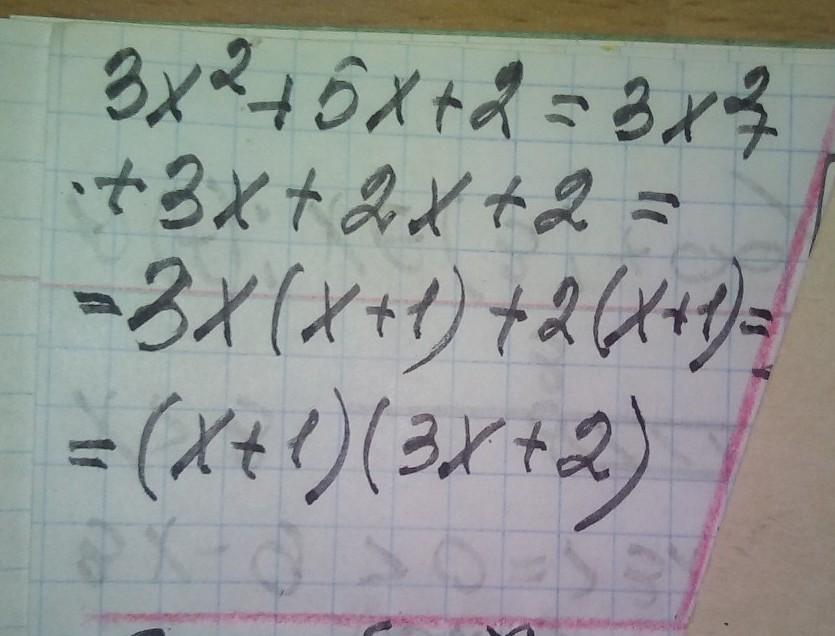 3x² + 5x + 2 = 3x² +
+ 3x + 2x + 2 =
= 3x(x+1) + 2(x+1) =
= (x+1)(3x+2)